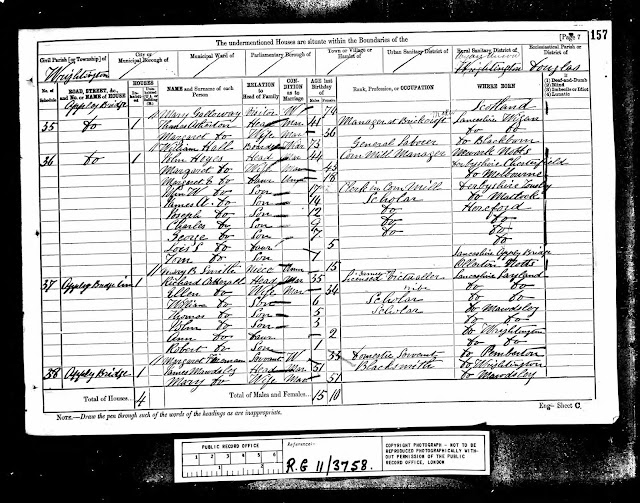 The undermentioned Houses are situate within the Boundaries of the [Page 7 157
Civil Parish [or Township] of City or Municipal Borough of Municipal Ward of Parliamentary Borough of Town or Village or Hamlet of Urban Sanitary District of Rural Sanitary District of Ecclesiastical Parish or District of
Wrightington Wrightington Douglas
No. of Schedule ROAD, STREET, &c., and No. or NAME of HOUSE HOUSES NAME and Surname of each Person RELATION to Head of Family CONDITION as to Marriage AGE last Birthday of Males Females Rank, Profession, or OCCUPATION WHERE BORN
If (1) Deaf-and-Dumb (2) Blind (3) Imbecile or Idiot (4) Lunatic
Appley Bridge Mary Galloway Visitor W 74 Scotland
35 Do 1 Head Mar 48 Manager at Brickcroft Lancashire Wigan
Margaret Do Wife Mar 36 Do Do
William Hall Boarder 73 General Labourer Do Blackburn
36 Do 1 John Head Mar 44 Corn Mill Manager Newark Notts
Margaret Do Wife Mar 43 Derbyshire Chesterfield
Margaret Do 18 Do Melbourne
Do Son 17 Clerk in Corn Mill Derbyshire
James A. Do Son 14 Scholar Do Matlock
Joseph Do Son 12 Do Hereford
Charles Do Son Do Do
George Do Son 7 Do Do
Lois E Do Daur 5 Do
Tom Do Son 1 Lancashire Appley Bridge
Mary B. Smith Niece Unm 15 Ollerton Notts
37 Appley Bridge Inn 1 Richard Head Mar 35 Licensed Victualler Lancashire
Ellen Do Wife Mar 34 Wife Do Do
William Do Son 6 Scholar Do Do
Thomas Do Son 5 Scholar Do Mawdsley
John Do Son 3 Do Do
Ann Do Daur 2 Do Wrightington
Robert Do Son 1 Do Do
Margaret Servant W 33 Domestic Servant Do Pemberton
38 Appley Bridge 1 James Mawdsley Head Mar 51 Blacksmith Do Wrightington
Mary Do Wife Mar 51 Do Mawdsley
Total of Houses... 4 Total of Males and Females... 15 10
NOTE.—Draw the pen through such of the words of the headings as are inappropriate.
Eng—Sheet C.
PUBLIC RECORD OFFICE
1 2 3 4 5 6
1 2
Reference:-
R.G 11/3758.
COPYRIGHT PHOTOGRAPH - NOT TO BE REPRODUCED PHOTOGRAPHICALLY WITHOUT PERMISSION OF THE PUBLIC RECORD OFFICE, LONDON